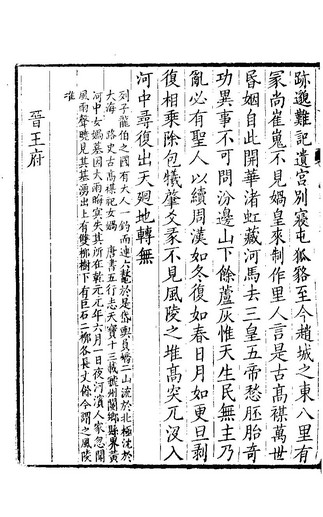 跡邈難記遺宫别寢屯狐貉至今趙城之東八里有
冢尚崔嵬不見媧皇來制作里人言是古高禖萬世
昏姻自此開華渚虹藏河馬去三皇五帝愁胚胎奇
功異事不可問汾邊山下餘蘆灰惟天生民無主乃
亂必有聖人以續周漢如冬復如春日月如更旦剥
復相乘除包犧肇爻彖不見風陵之堆高突兀没入
河中尋復出天廻地轉無
列子龍伯之國有大人一釣而連六鼇於是岱輿員嶠二山流於北極沈於
大海 路史古高禖祀女媧 唐書五行志天寶十三載虢州閿鄉縣界黃
河中女媧墓因大雨晦冥失其所在乾元元年六月一日夜河濱人家忽聞
風雨聲曉見其墓湧出上有雙柳樹下有巨石二柳各長丈餘今謂之風陵
堆
晋王府